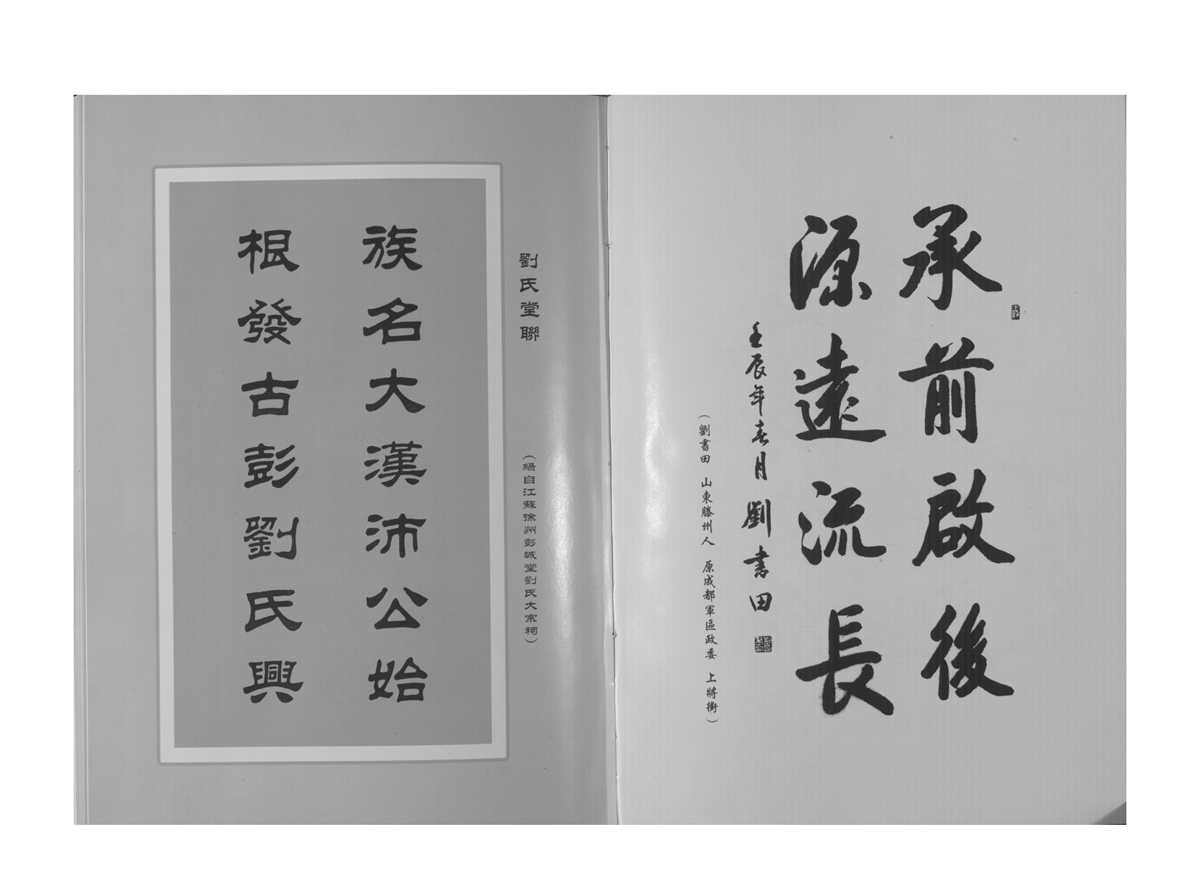 承前啟後
源遠流長
壬辰年春月 劉書田
(劉書田 山東滕州人 原成都軍區政委 上將銜)
劉氏堂聯
(編自江蘇徐州彭城堂劉氏大宗祠)
族名大漢沛公始
根發古彭劉氏興